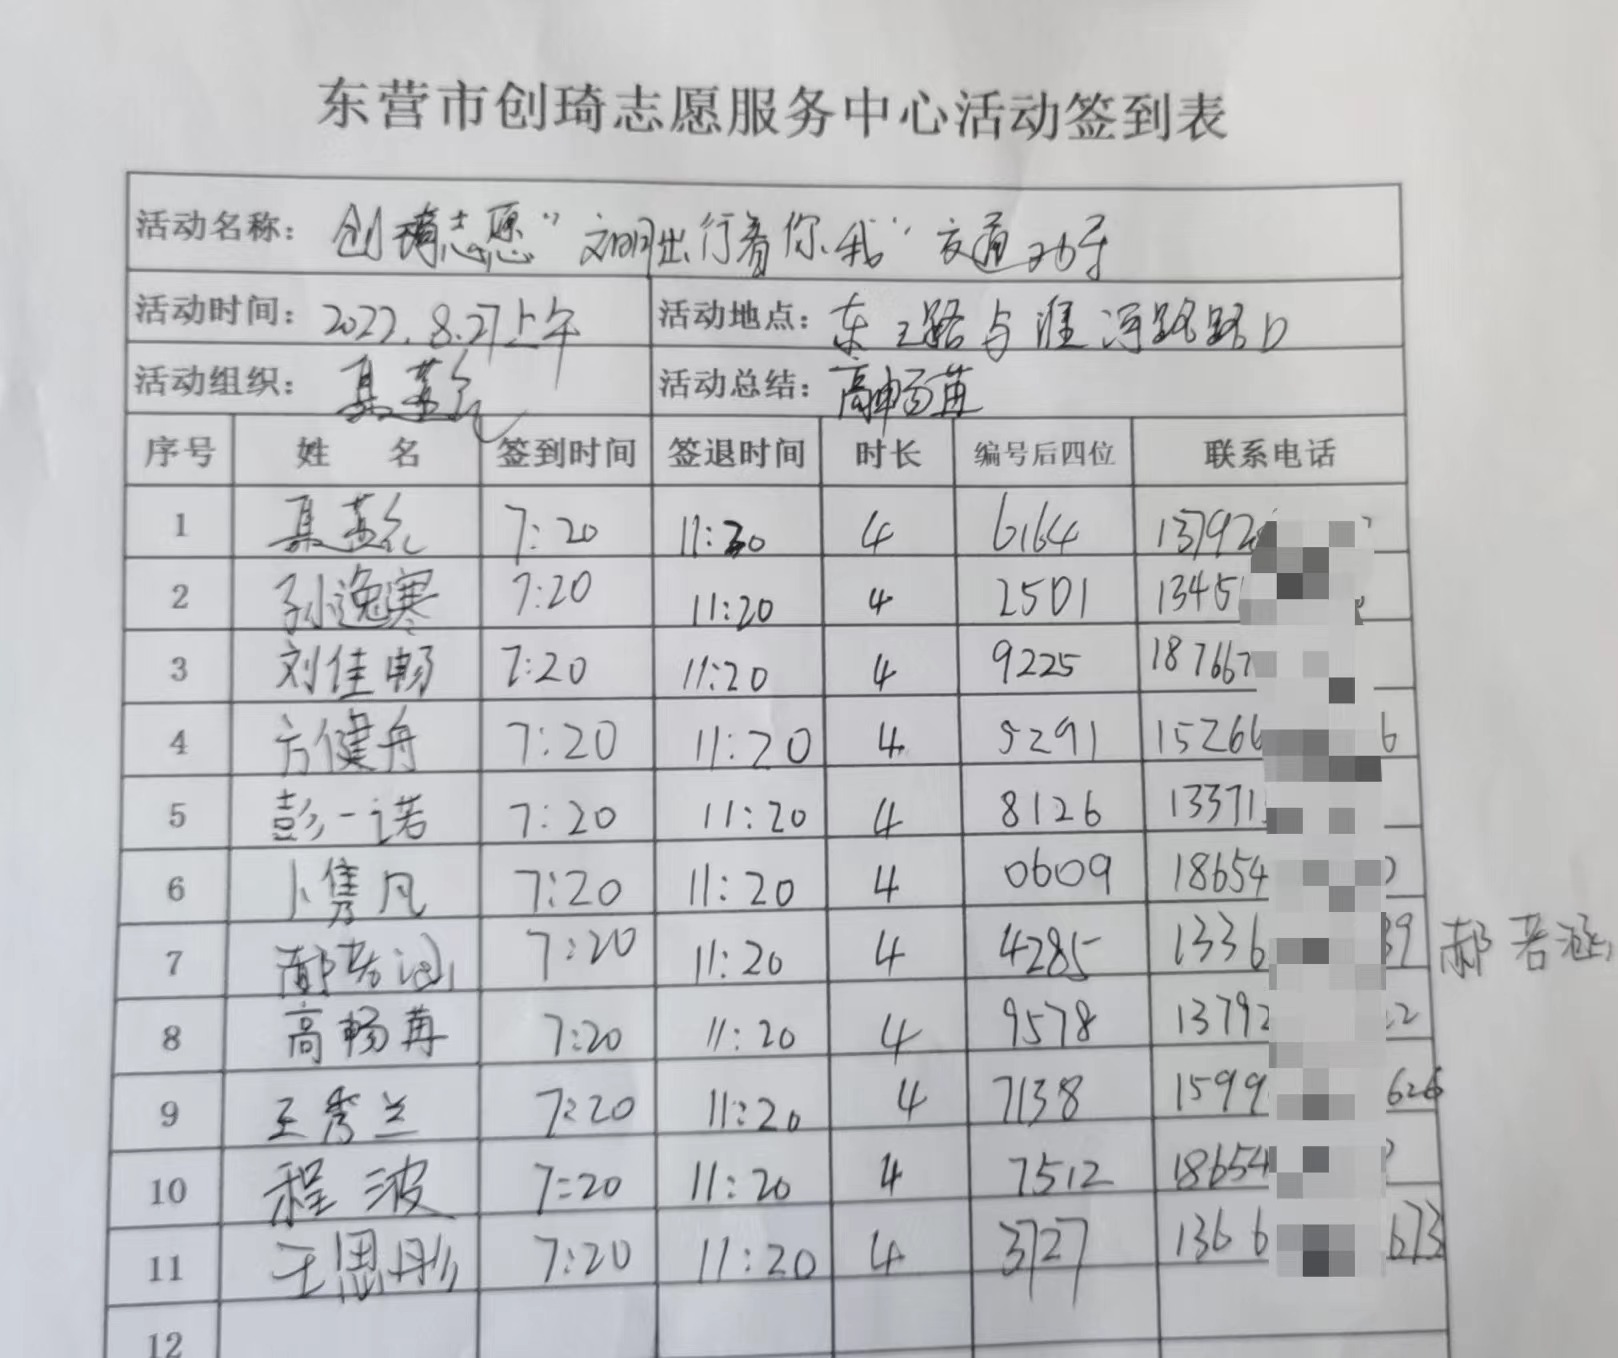 东营市创琦志愿服务中心活动签到表
活动名称: 创琦志愿“文明出行看你我”交通劝导
活动时间: 2022.8.27上午 活动地点: 东二路与淮河路路口
活动组织: 活动总结: 高畅苒
序号 姓 名 签到时间 签退时间 时长 编号后四位 联系电话
1 7:20 11:20 4 6164 13792
2 孙逸寒 7:20 11:20 4 2501 1345
3 刘佳畅 7:20 11:20 4 9225 187667
4 方健舟 7:20 11:20 4 5291 15266 6
5 彭一诺 7:20 11:20 4 8126 13371
6 卜隽凡 7:20 11:20 4 0609 18654
7 郝若涵 7:20 11:20 4 4285 1336 39 郝若涵
8 高畅苒 7:20 11:20 4 9578 13792 22
9 王秀兰 7:20 11:20 4 7138 1599 626
10 程波 7:20 11:20 4 7512 18654
11 王思彤 7:20 11:20 4 3727 136 6 673
12